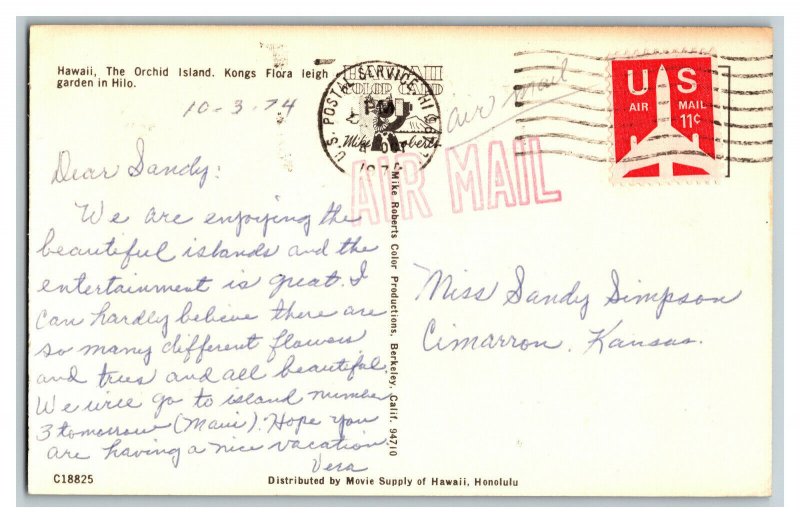 Hawaii, The Orchid Island. Kongs Flora leigh
garden in Hilo.
10-3-74
HAWAII
COLOR CARD
U.S. POSTAL SERVICE HI
PM
Mike Roberts
air mail
U S
AIR MAIL
11¢
AIR MAIL
Dear Sandy:
We are enjoying the
beautiful islands and the
entertainment is great. I
can hardly believe there are
so many different flowers
and trees and all beautiful.
We will go to island number
3 tomorrow (Maui). Hope you
are having a nice vacation.
Vera
Mike Roberts Color Productions, Berkeley, Calif. 94710
Miss Sandy Simpson
Cimarron, Kansas.
C18825
Distributed by Movie Supply of Hawaii, Honolulu